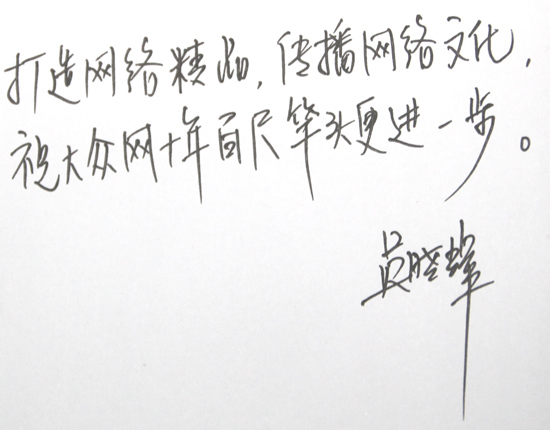 打造网络精品，传播网络文化，
祝大众网十年百尺竿头更进一步。